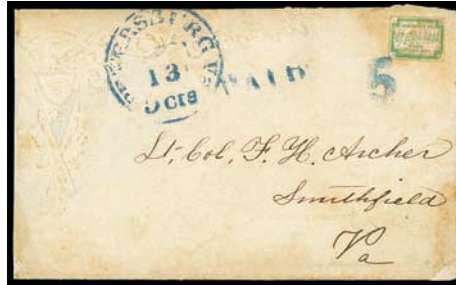 PETERSBURG Va.
13
5 cts
PAID
5
Lt, Col, F. H. Archer
Smithfield
Va